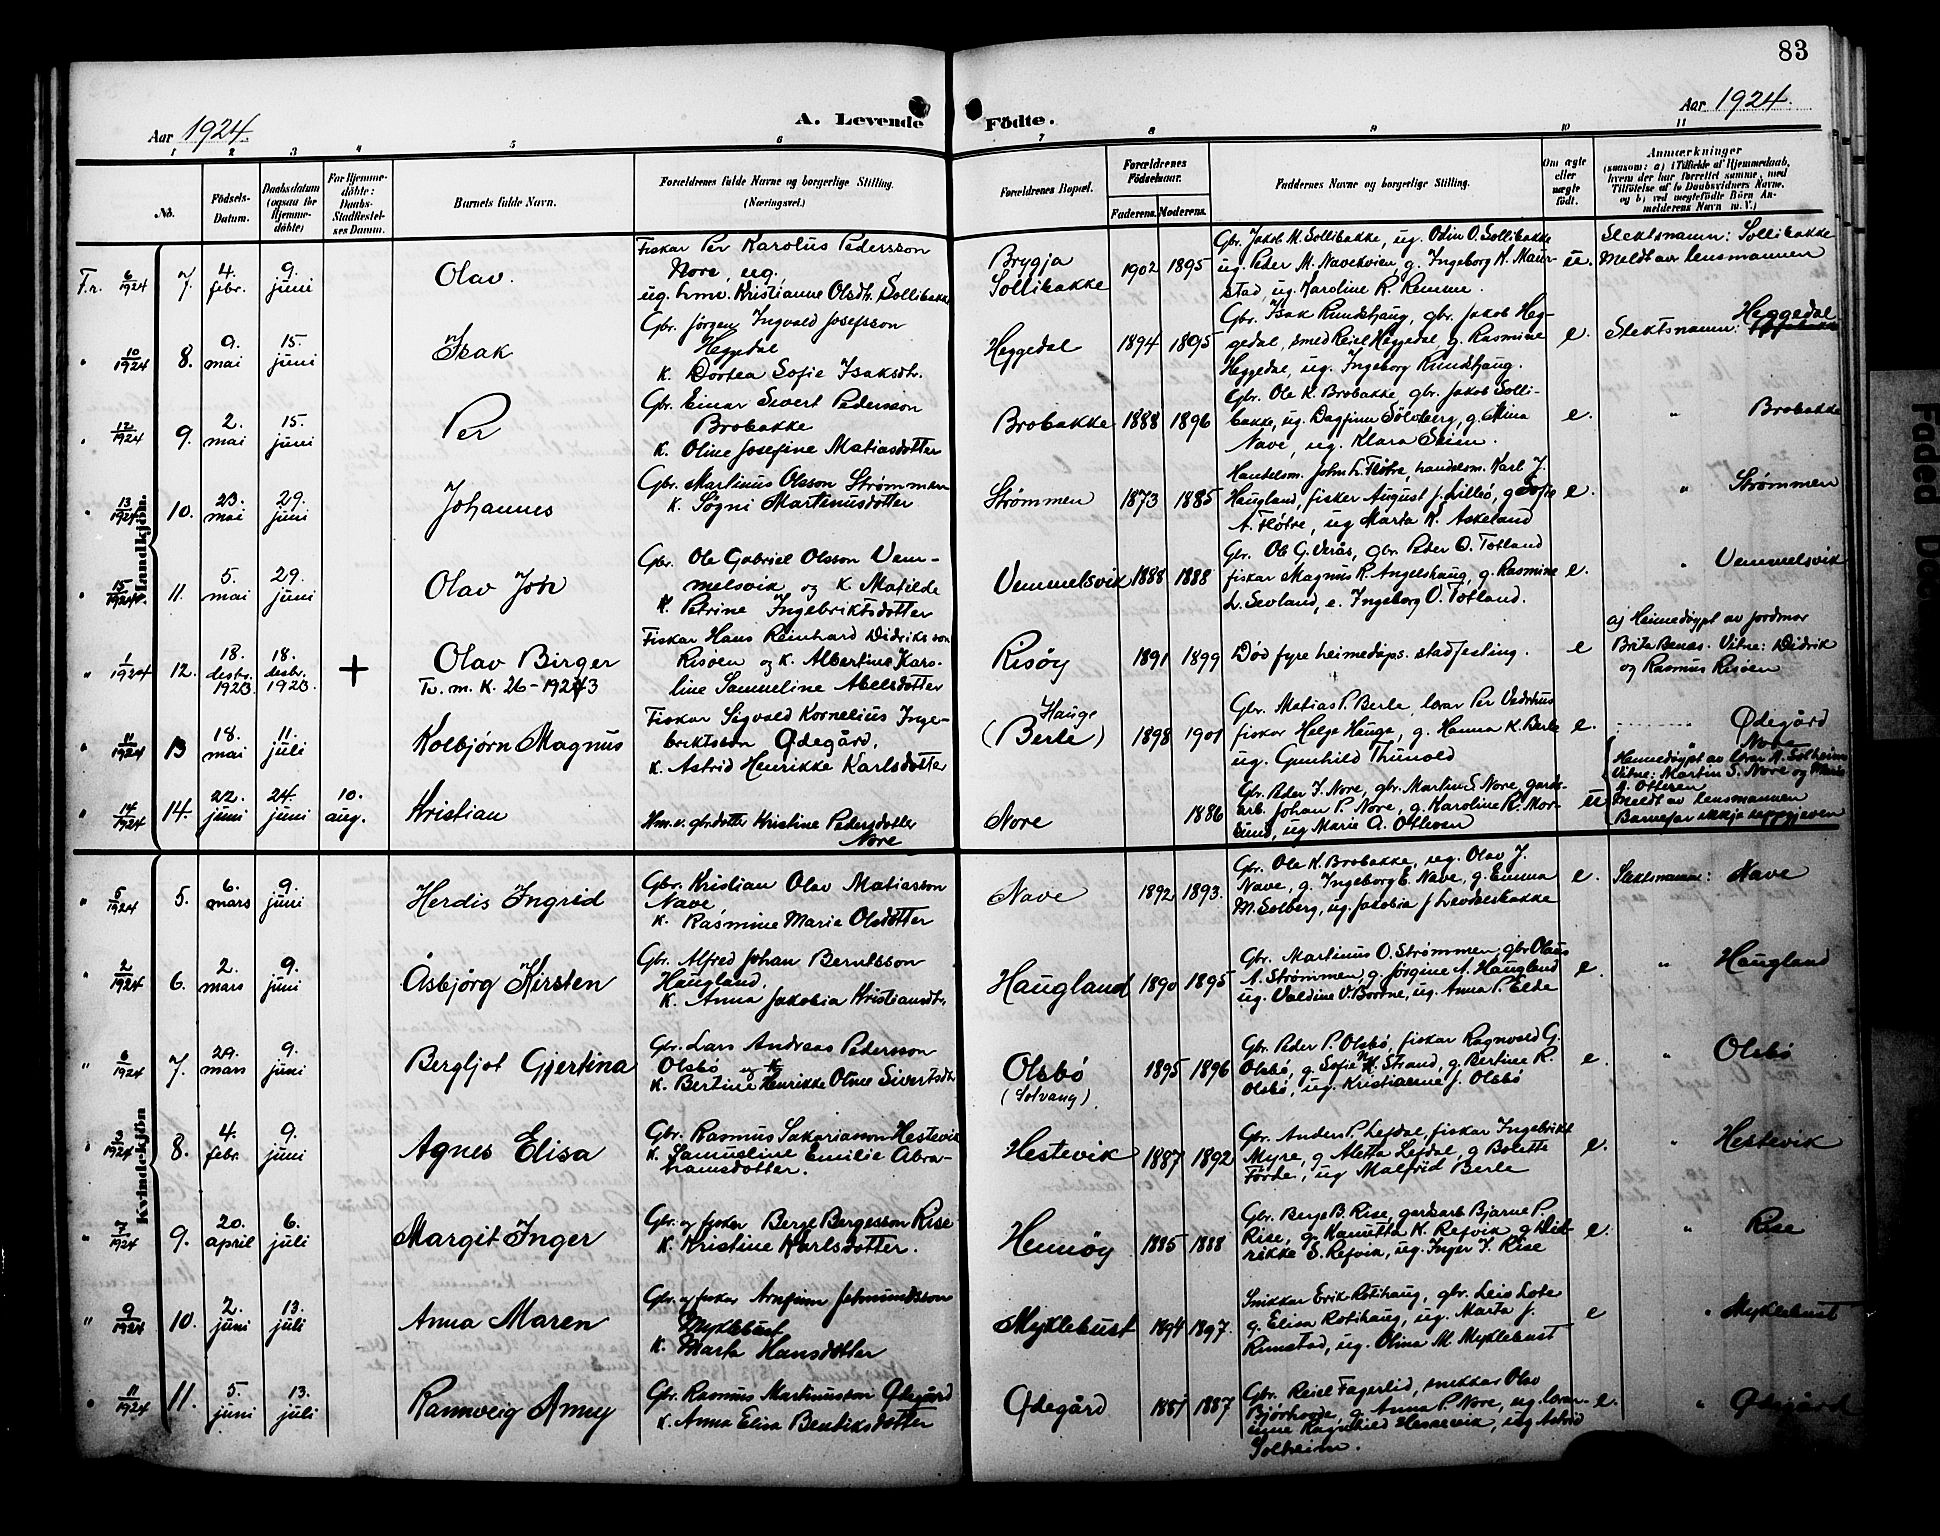 83
Aar 1924.
A. Levende Födte.
Aar 1924.
1 2 3 4 5 6 7 8 9 10 11
No.
Födsels-
Datum.
Daabsdatum
(ogsaa for
Hjemme-
döbte)
For Hjemme-
döbte:
Daabs-
Stadfæstel-
ses Datum.
Barnets fulde Navn.
Forældrenes fulde Navne og borgerlige Stilling.
(Næringsvei.)
Forældrenes Bopæl.
Forældrenes
Födselsaar.
Faderens. Moderens.
Faddernes Navne og borgerlige Stilling.
Om ægte
eller
uægte
födt.
Anmærkninger
(saasom: a) i Tilfælde af Hjemmedaab,
hvem der har forrettet samme, med
Tilföielse af to Daabsvidners Navne,
og b) ved uægtefödte Börn An-
melderens Navn m. V.)
Mandkjön.
F.r. 6/1924 7. 4. febr. 9. juni
Olav.
Fiskar Per Karolus Pedersson
Nore, ug.
ug. Kristianne Olsdtr. Sollibakke
Brygja
Sollibakke
1902 1895
Gbr. Jakob M. Sollibakke, ug. Odin O. Sollibakke
ug. Peder M. Navekvien g. Ingeborg K. Maur-
stad, ug. Karoline R. Remme.
u.
Slektsnamn: Sollibakke
Meldt av lensmannen
" 10/1924 8. 9. mai 15. juni
Isak
Gbr. Jørgen Ingvald Josefsson
Heggedal
K. Dortea Sofie Isaksdtr.
Heggedal
1894 1895
Gbr. Isak Rundhaug, gbr. Jakob Heg-
gedal, smed Reiel Heggedal, g. Rasmine
Heggedal, ug. Ingeborg Rundhaug.
e.
Slektsnamn: Heggedal
" 12/1924 9. 2. mai 15. juni
Per
Gbr. Einar Sivert Pedersson
Brobakke
K. Oline Josefine Matiasdotter
Brobakke
1888 1896
Gbr. Ole K. Brobakke, gbr. Jakob Solli-
bakke, ug. Dagfinn Sølvberg, g. Mina
Nave, ug. Klara Seim.
e.
" Brobakke
" 13/1924 10. 23. mai 29. juni
Johannes
Gbr. Martinus Olsson Strømmen
K. Søgni Martinusdotter
Strømmen
1873 1885
Handelsm. John L. Fløtre, handelsm. Karl J.
Haugland, fisker August J. Lillø, g. Sofie
A. Fløtre, ug Marta K. Askeland
e.
" Strømmen
" 15/1924 11. 5. mai 29. juni
Olav Joh
Gbr. Ole Gabriel Olsson Vem-
melsvik og K. Matilde
K. Petrine Ingebriktsdotter
Vemmelsvik
1888 1888
Gbr. Ole G. Verås, gbr. Peder O. Totland
fiskar Magnus R. Angelshaug, g. Rasmine
L. Sevland, e. Ingeborg O. Totland.
e.
" Vemmelsvik
" 1/1924 12. 18. desbr. 1923. 18. desbr. 1923. +
Olav Birger
Tv. m. K. 26-1923
Fiskar Hans Reinhard Didriksson
Risøen og K. Albertine Karo-
line Samueline Abelsdotter
Risøy
1891 1899
Død fyre heimedåps. stadfesting.
e
a) Heimedøypt av jordmor
Brita Benas. Vitne: Didrik
og Rasmus Risøen
" 11/1924 13 18. mai 11. juli
Kolbjørn Magnus
Fiskar Sigvald Kornelius Inge-
briktsson Ødegård.
K. Astrid Henrikke Karlsdotter
Hauge
(Berle)
1898 1901
Gbr. Matias P. Berle, lærar Per Vedrhus
fiskar Helge Hauge, g. Hanna K. Berle
ug. Gunhild Thunold
e.
" Ødegård
" 14/1924 14. 22. juni 24. juni 10. aug.
Kristian
Hm. v. gbrdotter Kristine Pedersdotter
Nore
Nore
1886
Gbr. Peder J. Nore, gbr. Martin S. Nore, gards-
arb. Johan P. Nore, g. Karoline R. Mor-
sund, ug Marie A. Otteren
u
Nore
Heimedøypt av lærar A. Solheim
Vitne: Martin S. Nore og Marie
A. Otteren
Meldt av lensmannen
Barnefar ikkje uppgjeven
Kvindekjön
" 5/1924 5. 6. mars 9. juni
Herdis Ingrid
Gbr. Kristian Olav Matiasson
Nave
K. Rasmine Marie Olsdotter
Nave
1892 1893.
Gbr. Ole K. Brobakke, ug. Olav J.
Nave, g. Ingeborg E. Nave, g. Emma
M. Solberg, ug. Jakobia J
e.
Slektsnamn: Nave
" 2/1924 6. 2. mars 9. juni
Åsbjørg Kirsten
Gbr. Alfred Johan Berntsson
Haugland.
K. Anna Jakobia Kristiansdtr.
Haugland
1890 1895
Gbr. Martinus O. Strømmen, gbr. Olaus
A. Strømmen, g. Jørgine A. Haugland
ug. Valdine O. Bortne, ug. Anna P. Elde
e.
" Haugland
" 6/1924 7. 29. mars 9. juni
Bergljot Gjertina
Gbr. Lars Andreas Pedersson
Olsbø og K
K. Bertine Henrikke Oline Sivertsdtr
Olsbø
(Solvang)
1895 1896
Gbr. Peder P. Olsbø, fiskar Ragnvald G.
Olsbø, g. Sofie K. Strand, g. Bertine R.
Olsbø, ug. Kristianne J. Olsbø
e.
" Olsbø
" 3/1924 8. 4. febr. 9. juni
Agnes Elisa
Gbr. Rasmus Sakariasson Hestevik
K. Samueline Emilie Abra-
hamsdotter.
Hestevik
1887 1892
Gbr. Anders P. Lefdal, fiskar Ingebrikt
Myre, g Aletta Lefdal, g Bolette
Førde, ug Malfrid Berle
e.
" Hestevik
" 7/1924 9. 20. april 6. juli
Margit Inger
Gbr. og fisker Berge Bergesson Rise
K. Kristine Karlsdotter.
Hennøy
1885 1888
Gbr. Berge B. Rise, gardsarb Bjarne P.
Rise, g. Kanutta K. Refvik, g Did-
rikke S. Refvik, ug. Inger J. Rise
e.
" Rise
" 9/1924 10. 2. juni 13. juli
Anna Maren
Gbr. og fisker Arnfinn Johnsson
Myklebust
K. Marta Hansdotter
Myklebust
1894 1897.
Snikkar Erik Rotihaug, gbr. Leis Lote
g. Elisa Rotihaug, ug. Marta J.
Rimstad, ug. Olina M. Myklebust
e
" Myklebust
" 11/1924 11. 5. juni 13. juli
Rannveig Anny
Gbr. Rasmus Martinusson Ødegård
K. Anna Elisa Bendiksdotter
Ødegård
1887 1887
Gbr. Reiel Fagerlid, snikkar Olav
Bjørhovde, g Anna P. Nore, ug. lærar-
inne Ragnhild Hestevik, ug Astrid
Solheim.
e.
" Ødegård
Faded Doc